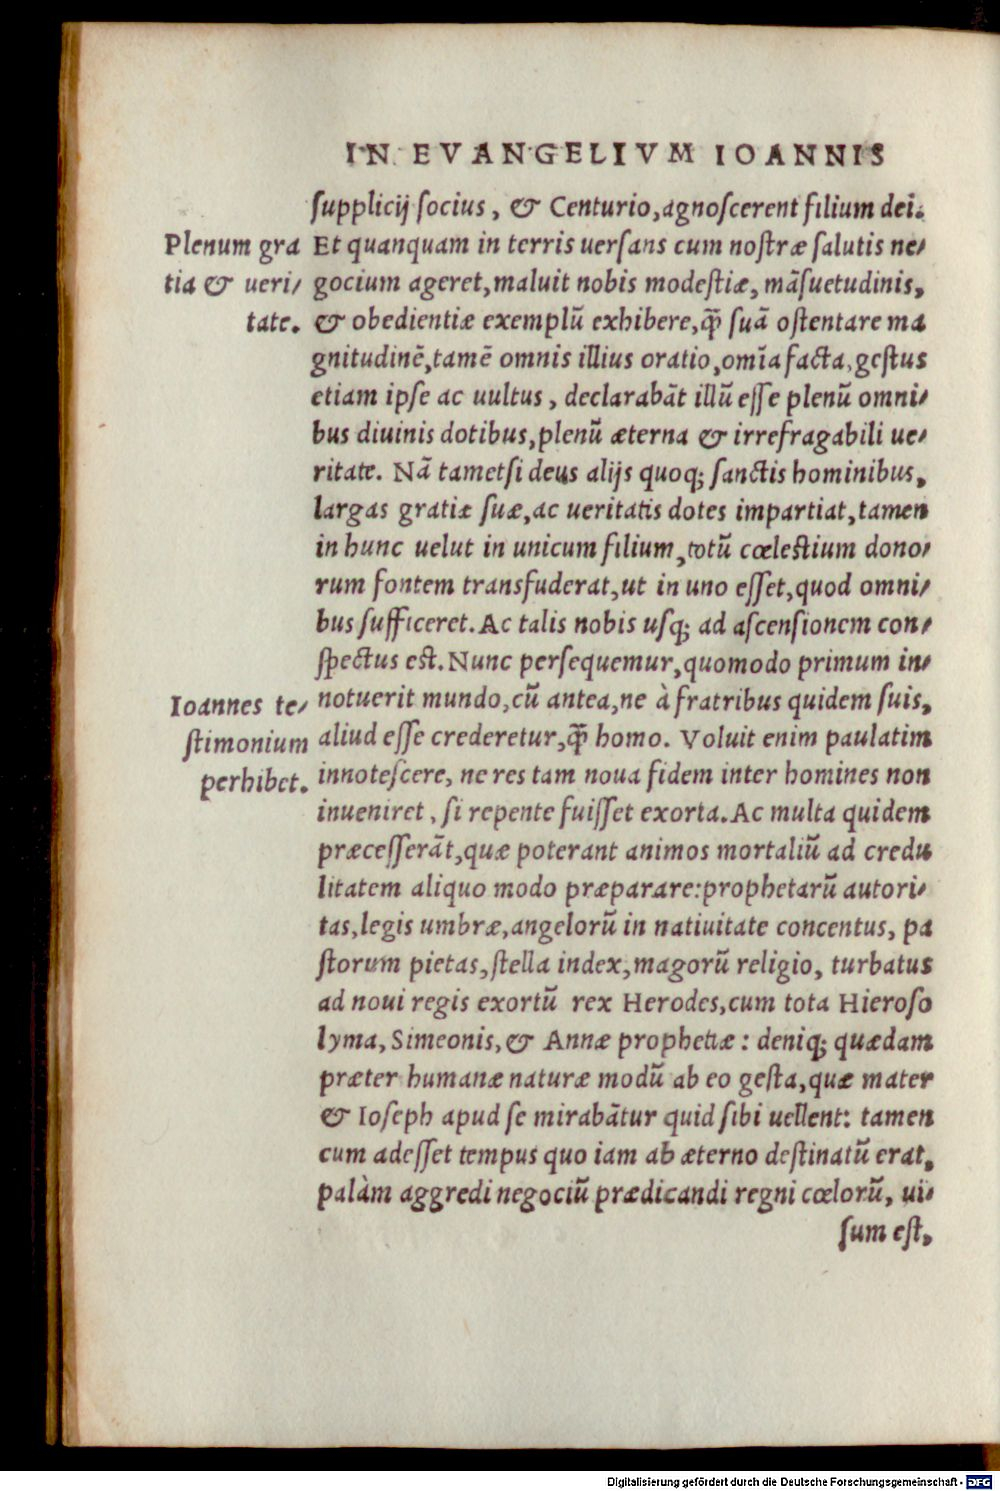 IN EVANGELIVM IOANNIS
ſupplicij ſocius, & Centurio, agnoſcerent filium dei.
Et quanquam in terris uerſans cum noſtræ ſalutis ne⸗
gocium ageret, maluit nobis modeſtiæ, mãſuetudinis,
& obedientiæ exemplũ exhibere, q̃ ſuã oſtentare ma
gnitudinẽ, tamẽ omnis illius oratio, omĩa facta, geſtus
etiam ipſe ac uultus, declarabãt illũ eſſe plenũ omni⸗
bus diuinis dotibus, plenũ æterna & irrefragabili ue⸗
ritate. Nã tametſi deus alijs quoq; ſanctis hominibus,
largas gratiæ ſuæ, ac ueritatis dotes impartiat, tamen
in hunc uelut in unicum filium, totũ cœleſtium dono⸗
rum fontem transfuderat, ut in uno eſſet, quod omni⸗
bus ſufficeret. Ac talis nobis uſq; ad aſcenſionem con⸗
ſpectus eſt. Nunc perſequemur, quomodo primum in⸗
notuerit mundo, cũ antea, ne à fratribus quidem ſuis,
aliud eſſe crederetur, q̃ homo. Voluit enim paulatim
innoteſcere, ne res tam noua fidem inter homines non
inueniret, ſi repente fuiſſet exorta. Ac multa quidem
præceſſerãt, quæ poterant animos mortaliũ ad credu
litatem aliquo modo præparare: prophetarũ autori⸗
tas, legis umbræ, angelorũ in natiuitate concentus, pa
ſtorum pietas, ſtella index, magorũ religio, turbatus
ad noui regis exortũ rex Herodes, cum tota Hieroſo
lyma, Simeonis, & Annæ prophetiæ: deniq; quædam
præter humanæ naturæ modũ ab eo geſta, quæ mater
& Ioſeph apud ſe mirabãtur quid ſibi uellent: tamen
cum adeſſet tempus quo iam ab æterno deſtinatũ erat,
palàm aggredi negociũ prædicandi regni cœlorũ, ui⸗
ſum eſt,
Plenum gra
tia & ueri⸗
tate.
Ioannes te⸗
ſtimonium
perhibet.
Digitalisierung gefördert durch die Deutsche Forschungsgemeinschaft - DFG